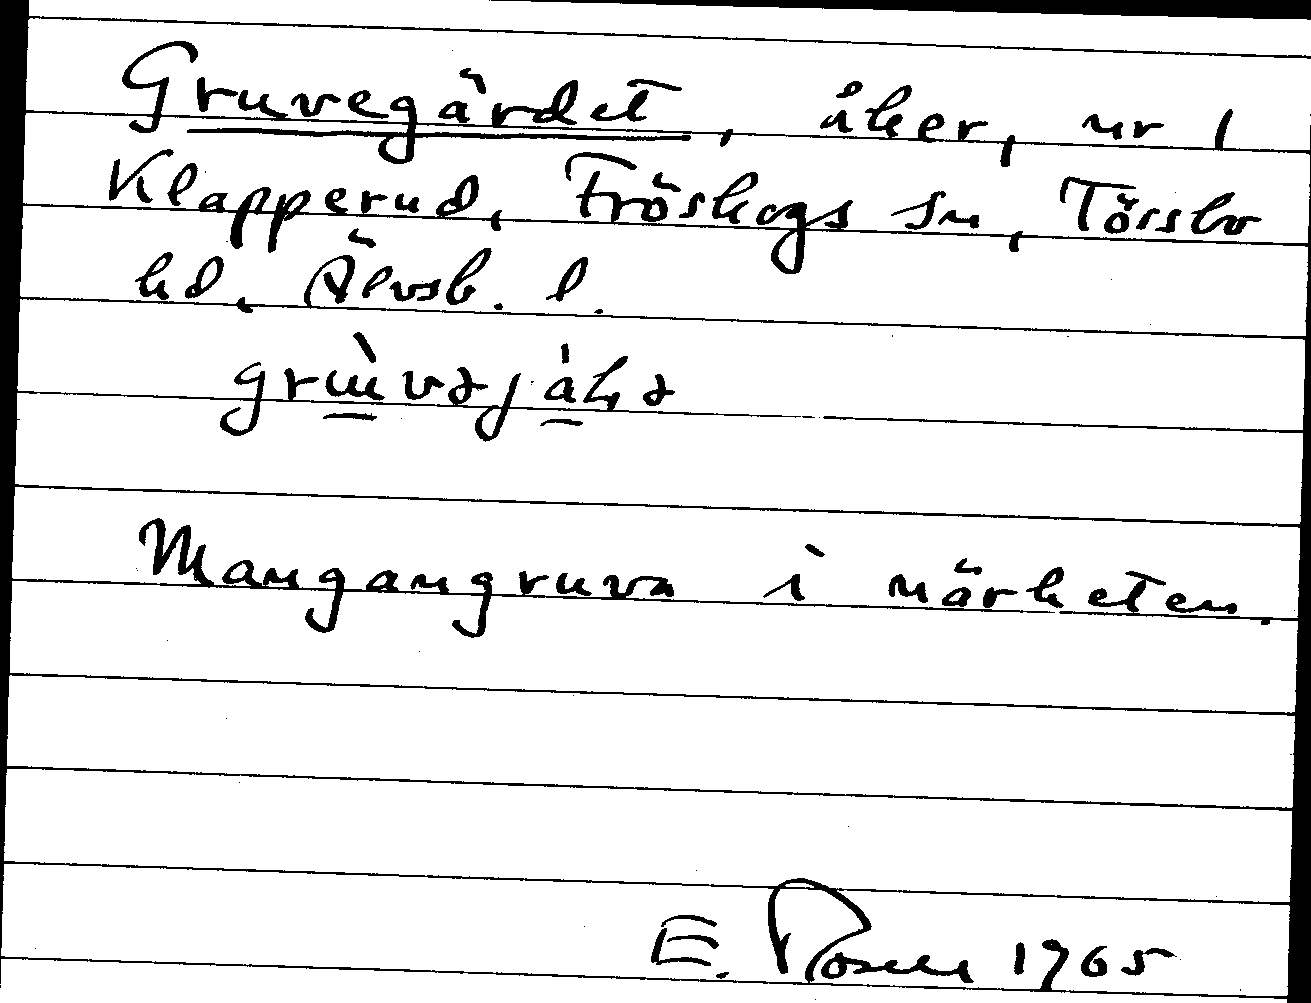 Gruvegärdet, åker, nr 1
Klapperud, Fröskogs sn, Tössbo
hd, Älvsb. l.
E. Rosell 1965
Mangangruva i närheten.